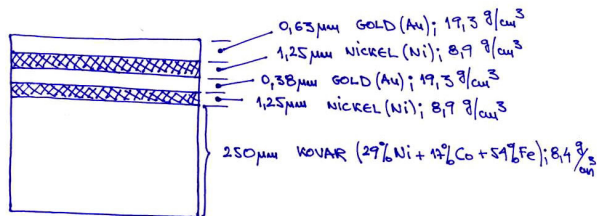 0,63μm GOLD (Au); 19,3 g/cm³
1,25μm NICKEL (Ni); 8,9 g/cm³
0,38μm GOLD (Au); 19,3 g/cm³
1,25μm NICKEL (Ni); 8,9 g/cm³
250μm KOVAR (29%Ni + 17%Co + 54%Fe); 8,4 g/cm³